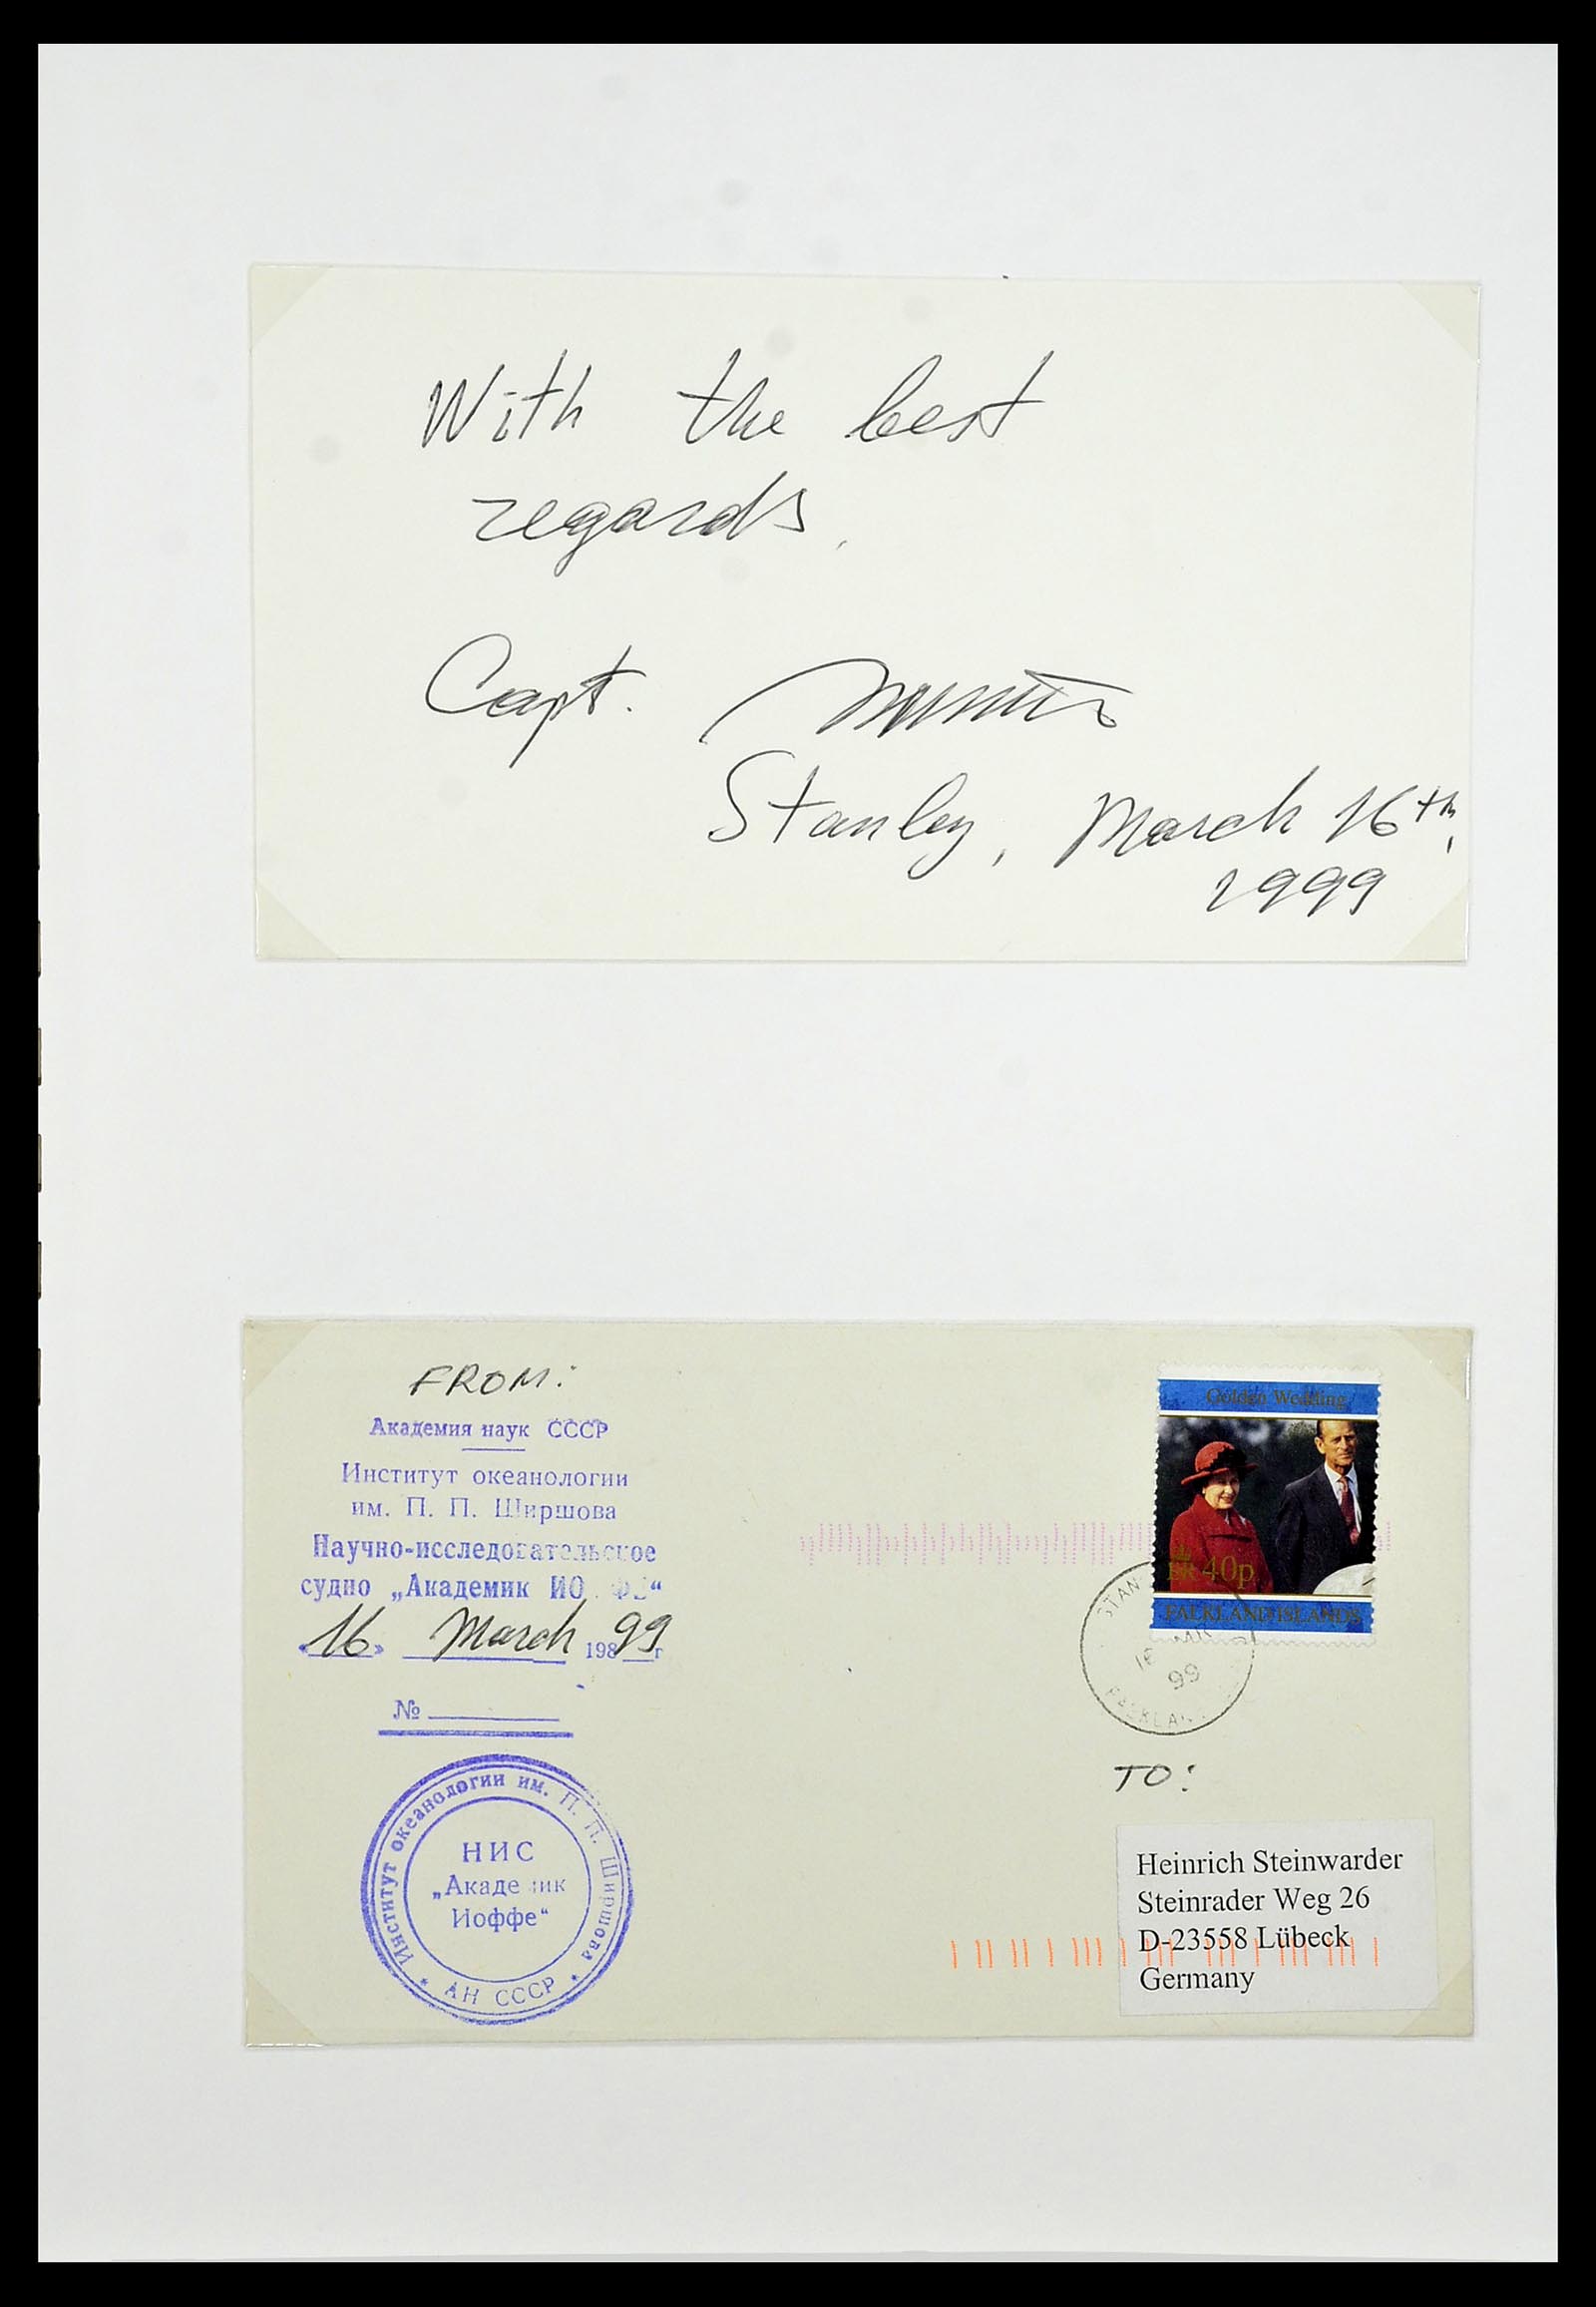 With the best
regards,
Capt.
Stanley, March 16th,
1999
FROM:
Академия наук СССР
Институт океанологии
им. П. П. Ширшова
Научно-исследовательское
судно „Академик ИОФФЕ“
«16» March 1989 99 г
№
Институт океанологии им. П. П. Ширшова
* АН СССР *
НИС
„Академик
Иоффе“
Golden Wedding
ER 40p
FALKLAND ISLANDS
STAN
16 MR
99
FALKLAN
TO:
Heinrich Steinwarder
Steinrader Weg 26
D-23558 Lübeck
Germany